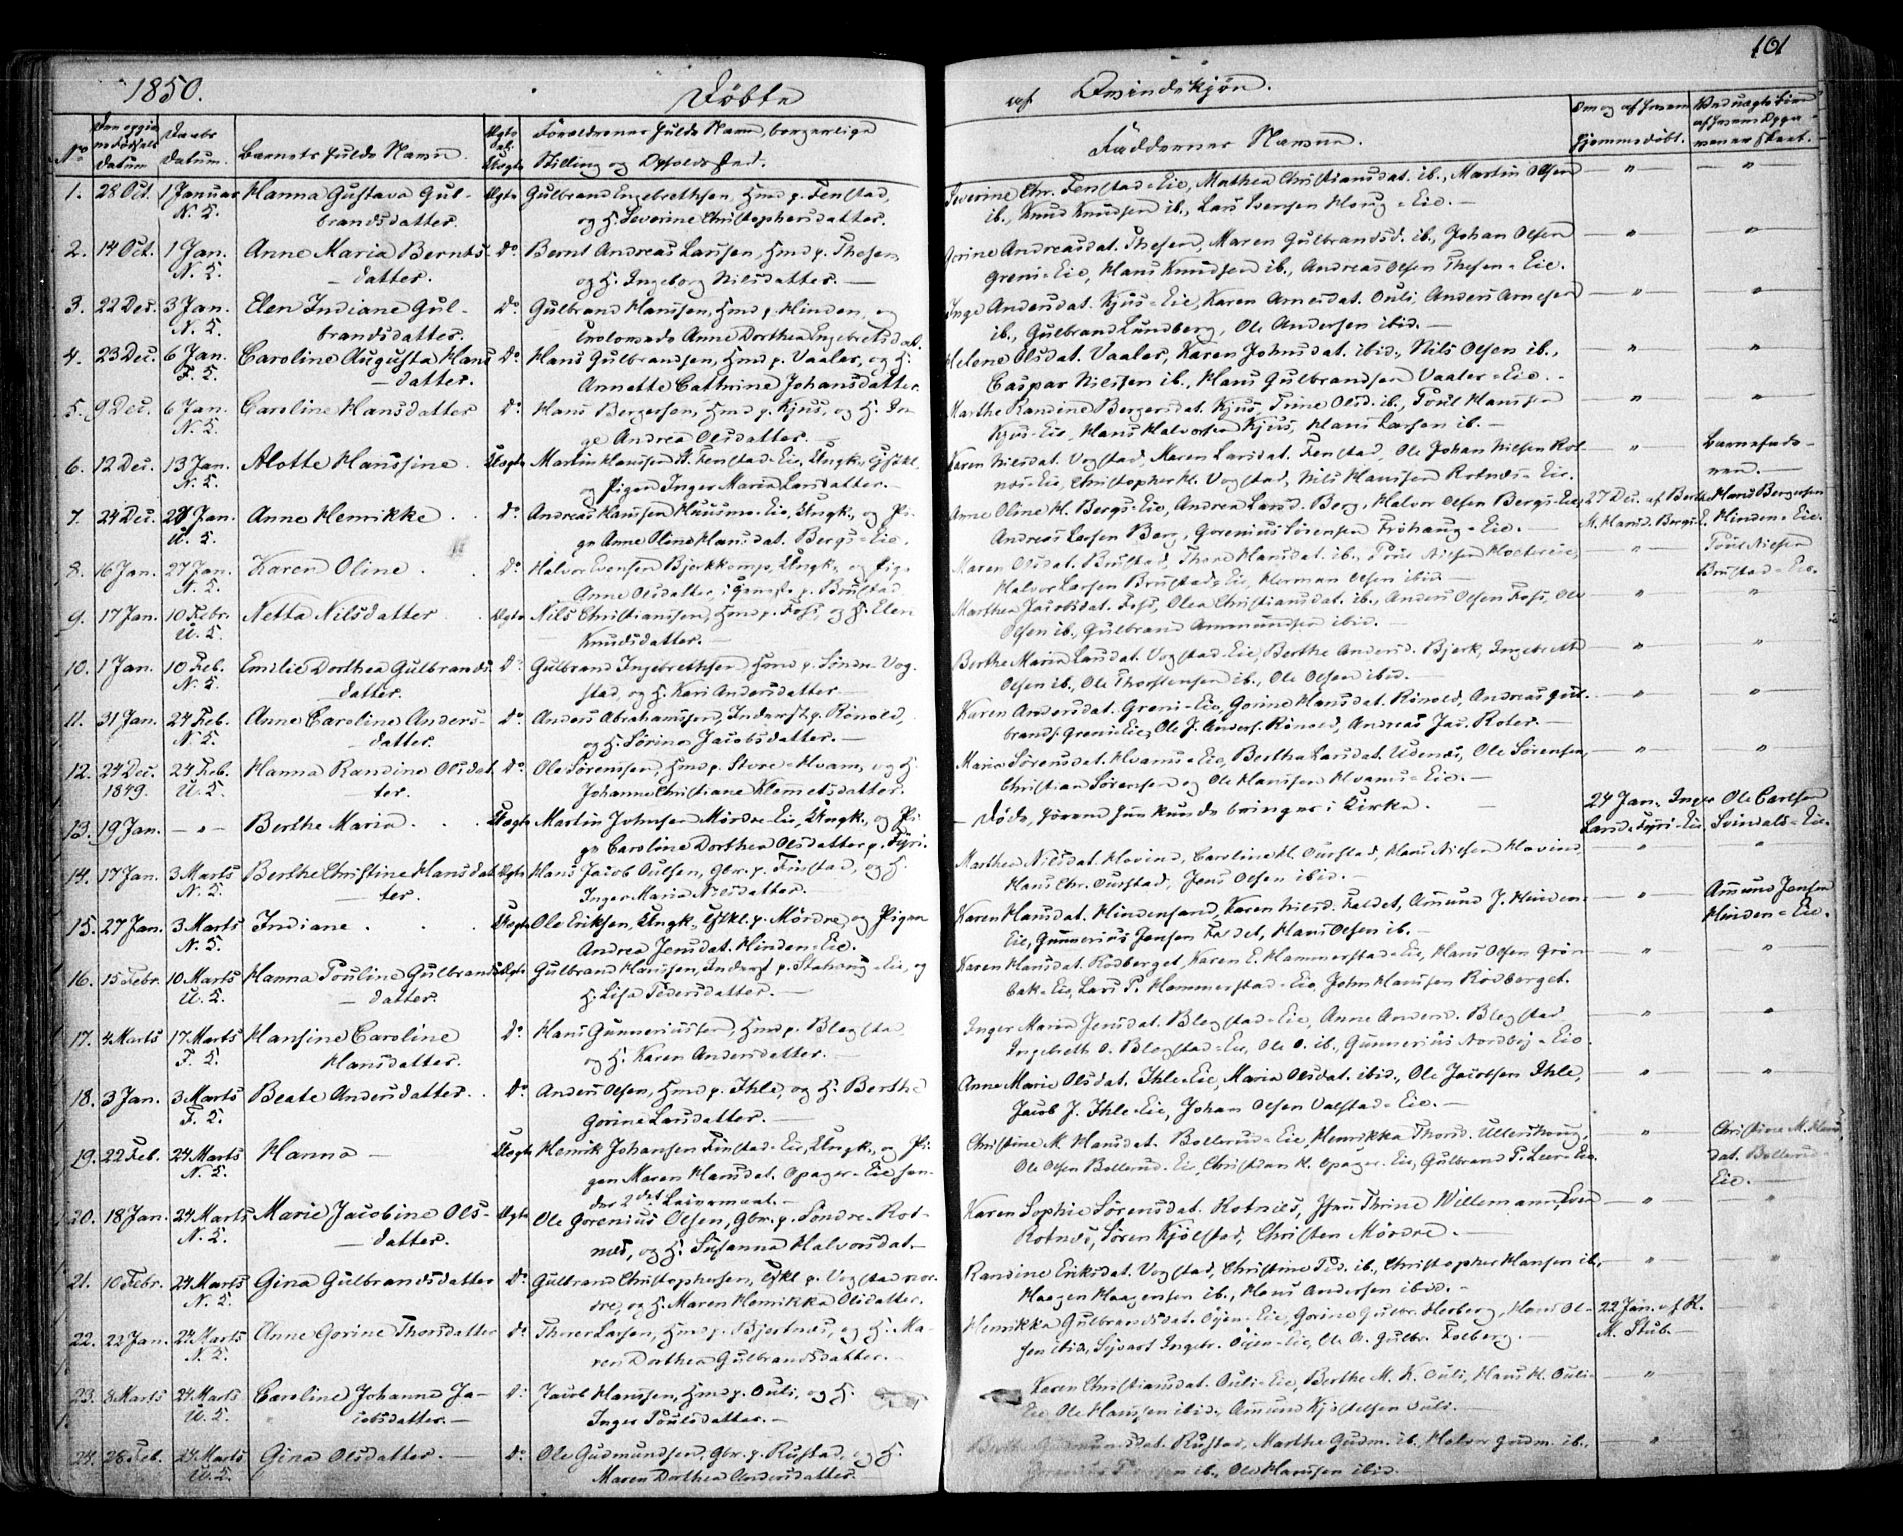 1850.
Døbte
af Qvindekjøn.
101
No
Datum
Daabs Datum.
Barnets fulde Navn.
Ægte el. Uægte
Forældrenes fulde Navn, borgerlige
Stilling og Opholdssted.
Faddernes Navne.
hjemmedøbt.
1. 28 Oct. 1 Januar Hanna Gustava Gul- Ægte Gulbrand Ingebrethsen, Hmd p. Fenstad,
N. K. brandsdatter. og H. Severine Christophersdatter.
Severine Chr. Fenstad-Eie, Mathea Christiansdat. ib., Martin Olsen
ib., Knud Knudsen ib., Lars Iversen Haug-Eie.
2. 14 Oct. 1 Jan. Anne Maria Bernts- Do Bernt Andreas Larsen, Hmd p. Thesen
N. K. datter. og H. Ingeborg Nilsdatter.
Andreasdat. Thesen, Maren Gulbrandsd. ib., Johan Olsen
Greni-Eie, Hans Knudsen ib., Andreas Olsen Thesen-Eie.
3. 22 Dec. 3 Jan. Elen Indiane Gul- Do Gulbrand Hansen, Hmd p. Hinden, og
brandsdatter. Anne Dorthea Ingebretsdat.
Inge Andersdat. Kjus-Eie, Karen Arnesdat. Ouli, Anders Arnesen
ib., Gulbrand Lundberg, Ole Andersen ibid.
4. 23 Dec. 6 Jan. Caroline Augusta Hans Do Hans Gulbrandsen, Hmd p. Vaaler, og H.
F. K. datter. Annette Cathrine Johansdatter.
Helene Olsdat. Vaaler, Karen Johnsdat. ibid., Nils Olsen ib.,
Caspar Nilssen ib., Hans Gulbrandsen Vaaler-Eie.
5. 9 Dec. 6 Jan. Caroline Hansdatter Do Hans Bergersen, Hmd p. Kjus, og H. In-
N. K. ge Andrea Olsdatter.
Marthe Randine Bergersdat. Kjus, Trine Olsd. ib., Poul Hansen
Kjus-Eie, Hans Halvorsen Kjus, Hans Larsen ib.
6. 12 Dec. 13 Jan. Alotte Hansine. Uægte Martin Hansen N. Fenstad-Eie, Ungk.,
N. K. og Pigen Inger Maria Larsdatter.
Karen Nilsdat. Vogstad, Maren Larsdat. Fenstad, Ole Johan Nilsen Rot-
næs-Eie, Christopher H. Vogstad, Nils Hansen Rotnæs-Eie.
Barnefade-
ren.
7. 24 Dec. 20 Jan. Anne Henrikke. Do Andreas Hansen Eie, Ungk., og Pi-
U. K. ge Anne Oline Hansdat. Bergs-Eie.
Anne Oline H. Bergs-Eie, Andrea Larsd. Berg, Halvor Olsen Bergs-Eie,
Andreas Larsen Berg, Gorenius Sörensen Frøhaug-Eie.
27 Dec. af Berthe
M. Hansd. Bergs-E.
Hans Bergersen
Hinden-Eie.
8. 16 Jan. 27 Jan. Karen Oline. Do Halvor Evensen Bjerkkemps, Ungk., og Pige
N. K. Anne Olsdatter, i p. Brustad
Maren Olsdat. Brustad, Thore Hansdat. ib., Poul Nilsen
Halvor Larsen Brustad-Eie, Herman Olsen ibid.
Poul Nilsen
Brustad-Eie.
9. 17 Jan. 10 Febr. Netta Nilsdatter Ægte Nils Christiansen, Hmd p. Foss, og H. Elen
U. K. Knudsdatter.
Marthea Jacobsdat. Foss, Olea Christiansdat. ib., Anders Olsen Foss, Ole
Olsen ib., Gulbrand Ammundsen ibid.
10. 1 Jan. 10 Feb. Emilie Dorthea Gulbrands- Do Gulbrand Ingebrethsen Hmd p. Söndre Vog-
N. K. datter. stad, og H. Kari Andersdatter.
Berthe Maria Larsdat. Vogstad-Eie, Berthe Andersd. Bjerk, Ingebreth
Olsen ib., Ole Thorstensen ib., Ole Olsen ibid.
11. 31 Jan. 24 Feb. Anne Caroline Anders- Do Anders Abrahamsen, Inderst p. Rönold,
N. K. datter. og H. Sörine Jacobsdatter.
Karen Andersdat. Greni-Eie, Gorine Hansdat. Rönold, Andreas Gul-
brands. Greni-Eie, Ole J. Anders. Rönold, Andreas Jac. Roter.
12. 24 Dec. 24 Feb. Hanna Randine Olsdat- Do Ole Sörensen, Hmd p. Store-Hvam, og H.
1849. U. K. ter. Johanne Christiane Klemetsdatter.
Maria Sörensdat. Hvams-Eie, Berthe Larsdat. Udenæs, Ole Sörensen,
Christian Sörensen og Ole Hansen Hvams-Eie.
13. 19 Jan. Berthe Maria. Uægte Martin Johnsen Mørdre-Eie, Ungk., og Pi-
ge Caroline Dorthea Olsdatter p. Fyri.
Døde, førend hun kunde bringes i Kirke.
24 Jan. Inger
Larsd. Fyri-Eie,
Ole Carlsen
Svindals-Eie.
14. 17 Jan. 3 Marts Berthe Christine Hansdat- Ægte Hans Jacob Pulsen, Gbr. p. Finstad, og H.
N. K. ter. Inger Maria Nilsdatter.
Marthea Nilsdat. Hovind, Caroline H. Ourstad, Hans Nilsen Hovind,
Hans Chr. Ourstad, Jens Olsen ibid.
15. 27 Jan. 3 Marts Indiane. Uægte Ole Eriksen, Ungk., p. Mördre, og Pigen
N. K. Andrea Jensdat. Hinden-Eie.
Karen Hansdat. Hindensand, Karen Nilsd. Faldet, Amund J. Hinden-
Eie, Gunnerius Jensen Faldet, Hans Olsen ib.
Amund Jensen
Hinden-Eie.
16. 15 Febr. 10 Marts Hanna Pouline Gulbrands- Ægte Gulbrand Hansen, Inderst p. Eie, og
U. K. datter. H. Lisa Pedersdatter.
Karen Hansdat. Rödberget, Karen E. Hammerstad-Eie, Hans Olsen Grön-
bak-Eie, Lars P. Hammerstad-Eie, John Hansen Rödberget.
17. 4 Marts 17 Marts Hansine Caroline Do Hans Gunneriussen, Hmd p. Blegstad,
F. K. Hansdatter. og H. Karen Andersdatter.
Inger Maria Jensdat. Blegstad-Eie, Anne Andersd. Blegstad
Ingebreth O. Blegstad-Eie, Ole O. ib., Gunnerius Nordby-Eie.
18. 3 Jan. 3 Marts Beate Andersdatter. Do Anders Olsen, Hmd p. Ihle, og H. Berthe
F. K. Gorine Larsdatter.
Anne Marie Olsdat. Ihle-Eie, Maria Olsdat. ibid., Ole Jacobsen Ihle,
Jacob J. Ihle-Eie, Johan Olsen Valstad-Eie.
19. 22 Feb. 24 Marts Hanna Uægte Henrik Johansen Finstad-Eie, Ungk., og Pi-
N. K. gen Maren Hansdat. Opager-Eie hen-
des 2det Leiermaal.
Christine M. Hansdat. Bollerud-Eie, Henrikka Thorsd. Ullershoug,
Ole Olsen Bollerud-Eie, Christian H. Opager-Eie, Gulbrand P. Leer-Eie.
Christine M. Hans-
dat. Bollerud-
Eie.
20. 18 Jan. 24 Marts Marie Jacobine Ols- Ægte Ole Gorenius Olsen, Gbr. p. Söndre Rot-
N. K. datter. næs, og H. Susanna Halvorsdat.
Karen Sophie Sörensdat. Rotnæs, Thrine Willemann, Even
Rotnæs, Sören Kjölstad, Christen Mördre.
21. 10 Febr. 24 Marts Gina Gulbrandsdatter Do Gulbrand Christophersen, p. Vogstad nor-
N. K. dre, og H. Maren Henrikka Olsdatter.
Randine Eriksdat. Vogstad, Christine Ped. ib., Christopher Hansen ib.,
Haagen Haagensen ib., Hans Andersen ibid.
22. 22 Jan. 24 Marts Anne Gorine Thorsdatter Do Thorer Larsen, Hmd p. Bjertnæs, og H. Ma-
N. K. ren Dorthea Gulbrandsdatter.
Henrikka Gulbrandsdat. Öien-Eie, Gorine Gulbr. Herberg, Hans Ol-
sen ibid., Sivert Ingebr. Öien-Eie, Ole O. Gulbr. Folberg.
22 Jan. af K.
M. Stub.
23. 8 Marts 24 Marts Caroline Johanne Ja- Do Jacob Hansen, Hmd p. Ouli, og H.
U. K. cobsdatter. Inger Poulsdatter.
Karen Christiansdat. Ouli-Eie, Berthe M. K. Ouli, Hans H. Ouli-
Eie, Ole Hansen ibid., Amund Kjöstelsen Ouli.
24. 28 Feb. 24 Marts Gina Olsdatter. Do Ole Gudmundsen, Gbr. p. Rustad, og H.
U. K. Maren Dorthea Andersdatter
Gudmundsdat. Rustad, Marthe Gudm. ib., Halvor Gudm. ib.,
ib., Ole Hansen ibid.